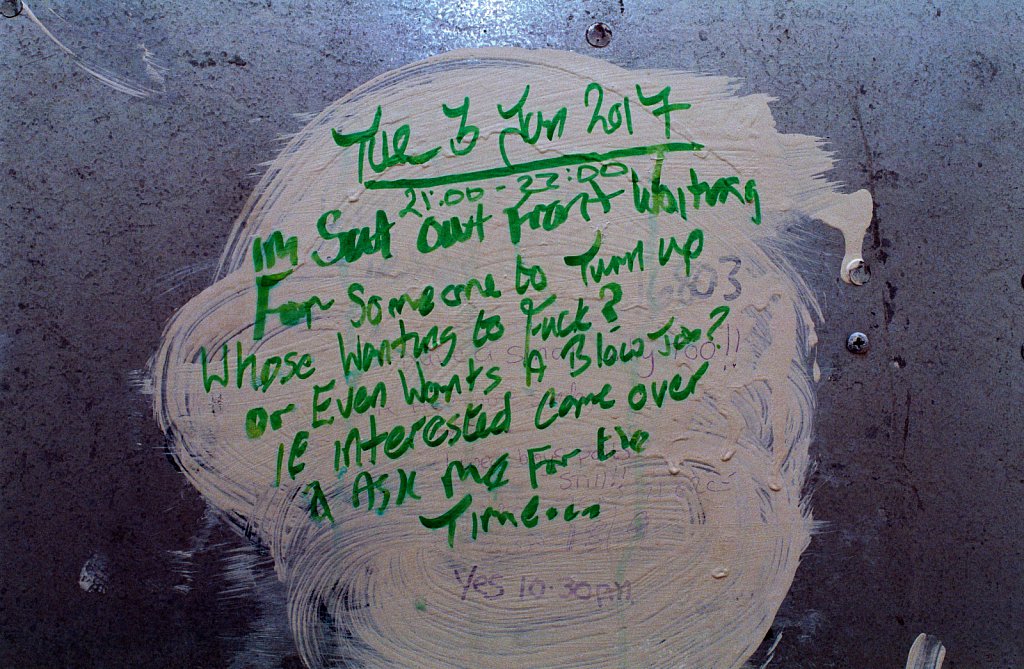 Tue 3 Jan 2017
21:00 - 22:00
im Sat out Front Waiting
For Someone to Turn up
Whose Wanting to Fuck?
or Even Wants A Blow Job?
If interested Come over
& Ask me For the
Time...
6803
too!!
Still
Yes 10.30pm